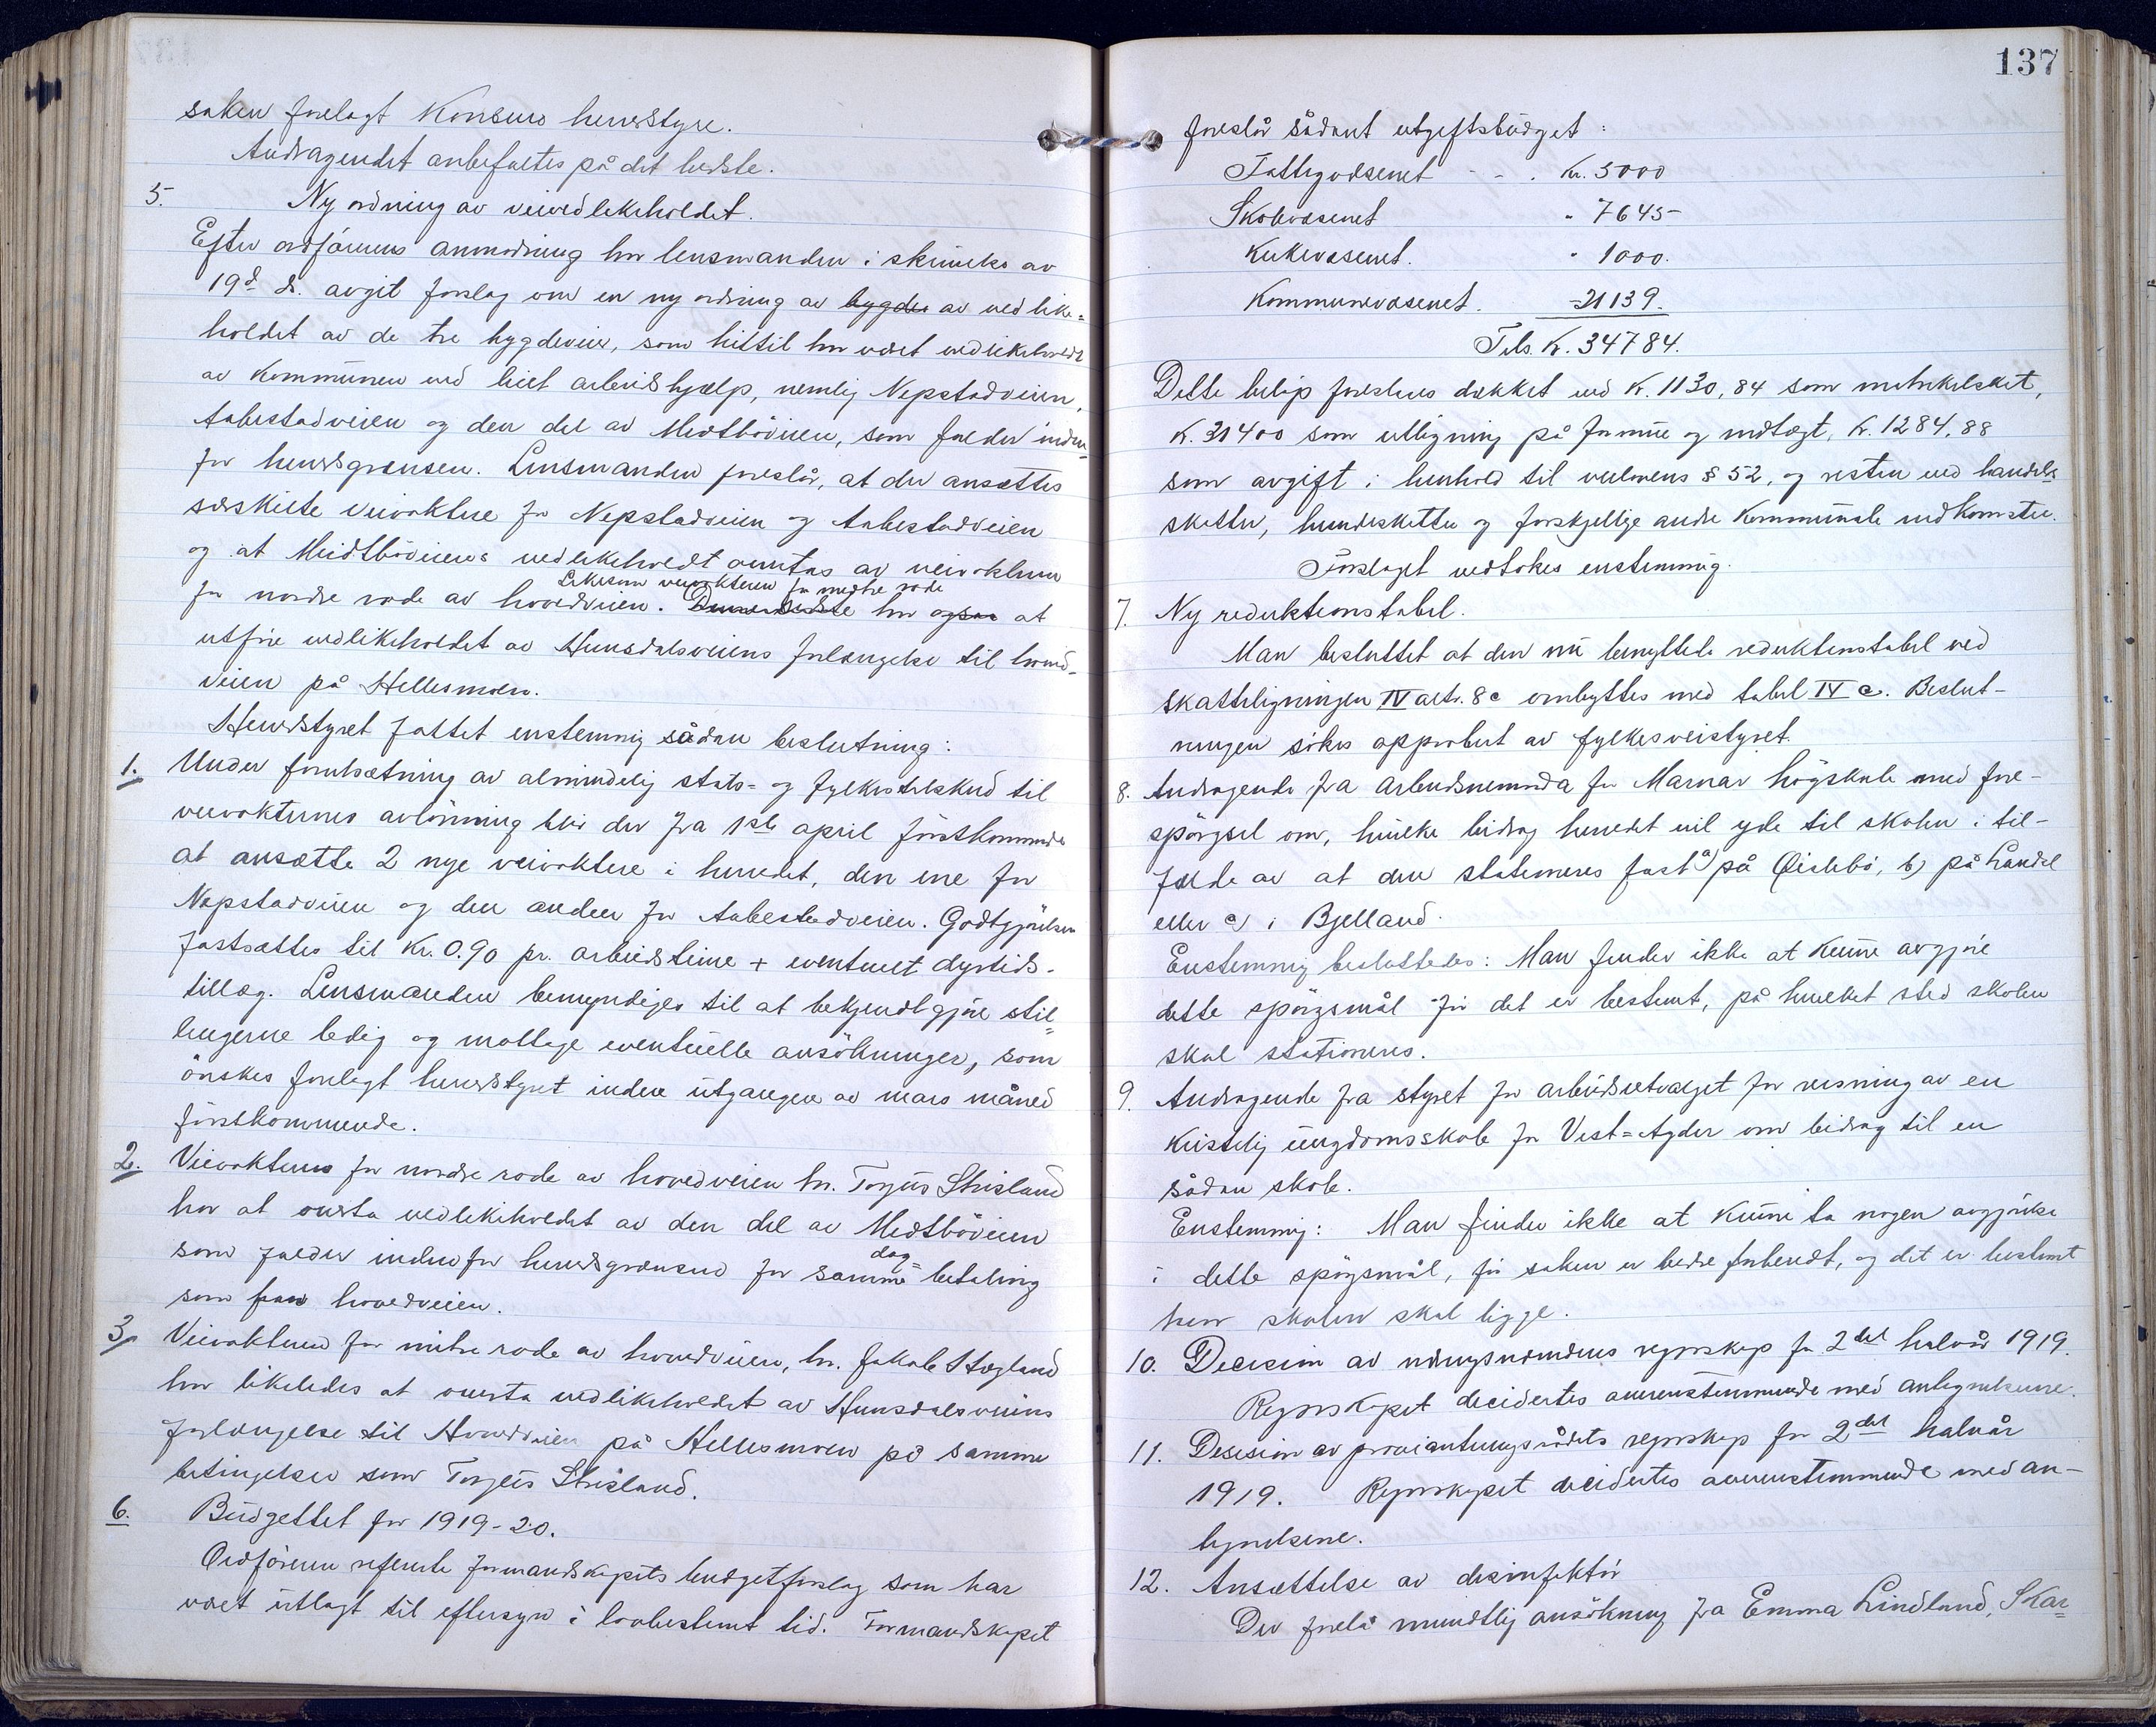 saken forelagt Konsmo herredstyre.
Andragendet anbefaltes på det bedste.
5. Ny ordning av veivedlikeholdet.
Efter ordførerens anmodning har lensmanden i skrivelse av
19d ds. avgit forslag om en ny ordning av bygdev av vedlike=
holdet av de tre bygdeveier, som hittil har været vedlikeholdt
av Kommunen ved leiet arbeidshjælp, nemlig Nepstadveien,
Aabestadveien og den del av Midtböveien, som falder inden-
for herredsgrænsen. Lensmanden foreslår, at der ansættes
særskilte veivoktere for Nepstadveien og Aabestadveien
og at Midtböveiens vedlikeholdt overtas av veivokteren
Likesom veivokteren for midtre rode
for nordre rode av hovedveien. har også at
utføre vedlikeholdet av Hunsdalsveiens forlængelse til hoved-
veien på Hellesmoen.
Herredstyret fattet enstemmig sådan beslutning:
1. Under forutsætning av almindelig stats- og fylkestilskud til
veivokternes avlønning blir der fra 1ste april førstkommende
at ansætte 2 nye veivoktere i herredet, den ene for
Nepstadveien og den anden for Aabestadveien. Godtgjørelsen
fastsættes til Kr. 0.90 pr. arbeidstime + eventuelt dyrtids-
tillæg. Lensmanden bemyndiges til at bekjendtgjøre stil=
lingerne ledig og mottage eventuelle ansökninger, som
önskes forelagt herredstyret inden utgangen av mars måned
förstkommende.
2. Veivokteren for nordre rode av hovedveien hr. Torjus Strisland
har at overta vedlikeholdet av den del av Midtböveien
som falder indenfor herredsgrænsen for samme dag= betaling
som for hovedveien.
3. Veivokteren for mitre rode av hovedveien, hr. Jakob Høgland
har likeledes at overta vedlikeholdet av Hunsdalsveiens
forlængelse til Hovedveien på Hellesmoen på samme
betingelser som Torjus Strisland.
6. Budgettet for 1919-20.
Ordføreren refererte formandskapets budgetforslag som har
været utlagt til eftersyn i lovbestemt tid. Formandskapet
137
foreslår sådant utgiftsbudget:
Fattigvæsenet - - . Kr. 5000
Skolevæsenet " 7645-
Kirkevæsenet. " 1000.
Kommunevæsenet. - 21139.
Tils. Kr. 34784.
Dette beløp foreslaes dækket ved Kr. 1130,84 som matrikelskat,
Kr. 31400 som utligning på formue og indtægt, Kr. 1284,88
som avgift i henhold til veilovens § 52, og resten ved handels
skatter, hundeskatter og forskjellige andre Kommunale indkomster.
Forslaget vedtokes enstemmig.
7. Ny reduktionstabel.
Man besluttet at den nu benyttede reduktionstabel ved
skatteligningen IV alt. 8c ombyttes med tabel IV c. Beslut-
ningen sökes approbert av fylkesveistyret.
8. Andragende fra arbeidsnemnda for Marnar högskule med fore-
spörgsel om, hvilke bidrag herredet vil yde til skolen i til-
fælde av at den stationeres fast a) på Øislebö, b) på Laudal
eller c) i Bjelland.
Enstemmig besluttedes: Man finder ikke at kunne avgjøre
dette spörgsmål før det er bestemt, på hvilket sted skolen
skal stationeres.
9. Andragende fra styret for arbeidsutvalget for reisning av en
kristelig ungdomsskole for Vest=Agder om bidrag til en
sådan skole.
Enstemmig: Man finder ikke at kunne ta nogen avgjørelse
i dette spörgsmål, før saken er bedre forberedt, og det er bestemt
hvor skolen skal ligge.
10. Decision av regnskap for 2det halvår 1919.
Regnskapet decidertes overenstemmende med antegnelserne.
11. Decision av provianteringsrådets regnskap for 2det halvår
1919. Regnskapet decidertes overenstemmende med an-
tegnelserne.
12. Ansættelse av desinfektör
Der forelå mundtlig ansökning fra Emma Lindland, Skar=